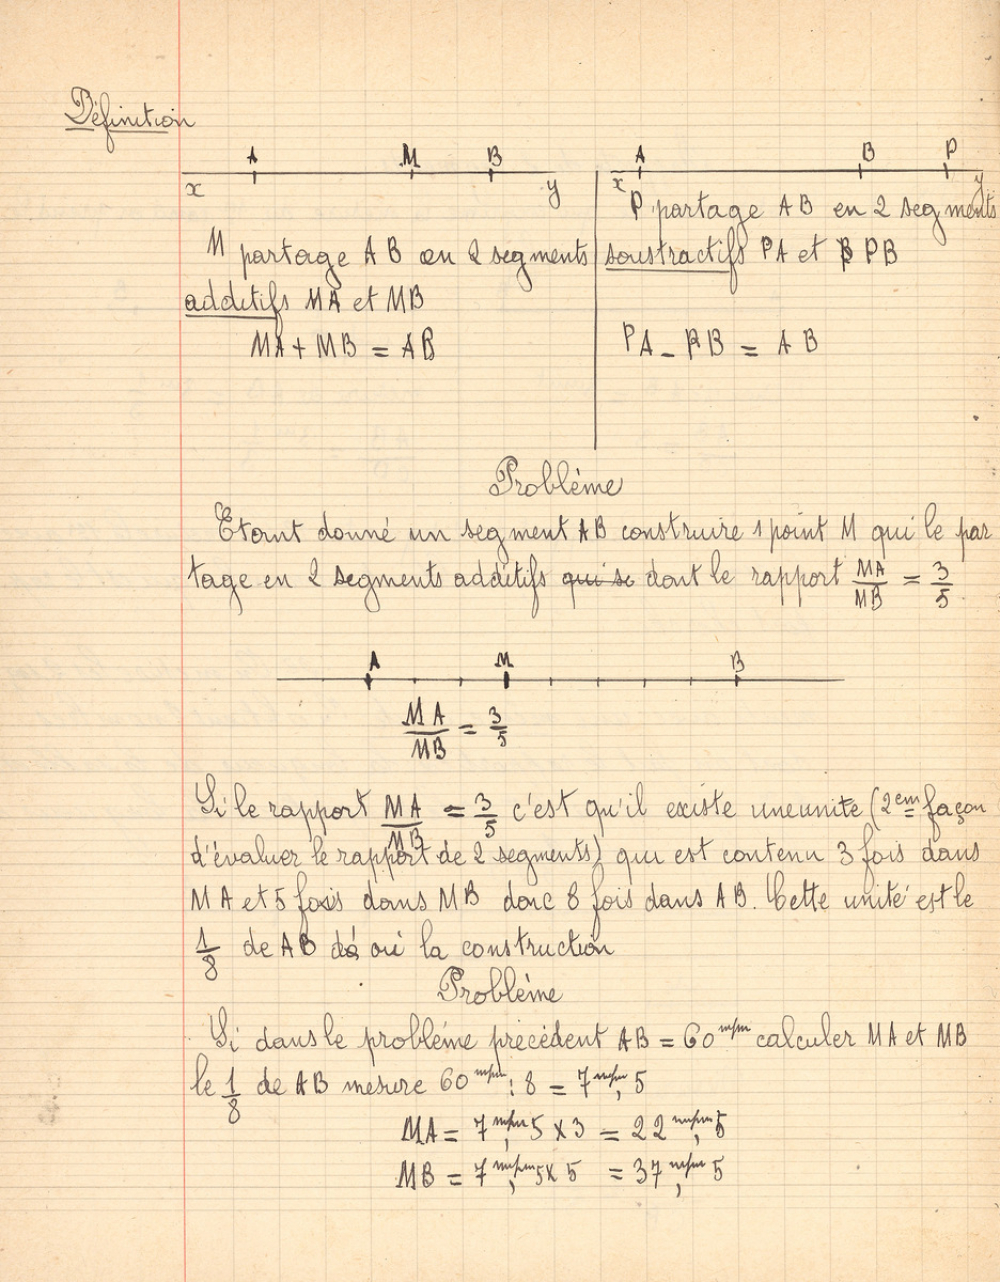 Définition
A M B
x y
M partage AB en 2 segments
additifs MA et MB
MA + MB = AB
A B P
x y
P partage AB en 2 segments
soustractifs PA et PB
PA - PB = AB
Problème
Etant donné un segment AB construire 1 point M qui le par
tage en 2 segments additifs qui se dont le rapport MA/MB = 3/5
A M B
MA/MB = 3/5
Si le rapport MA/MB = 3/5 c'est qu'il existe une unité (2em façon
d'évaluer le rapport de 2 segments) qui est contenu 3 fois dans
MA et 5 fois dans MB donc 8 fois dans AB. Cette unité est le
1/8 de AB d'où la construction
Problème
Si dans le problème précédent AB = 60 m/m calculer MA et MB
le 1/8 de AB mesure 60 m/m : 8 = 7 m/m, 5
MA = 7 m/m, 5 x 3 = 22 m/m, 5
MB = 7 m/m, 5 x 5 = 37 m/m, 5